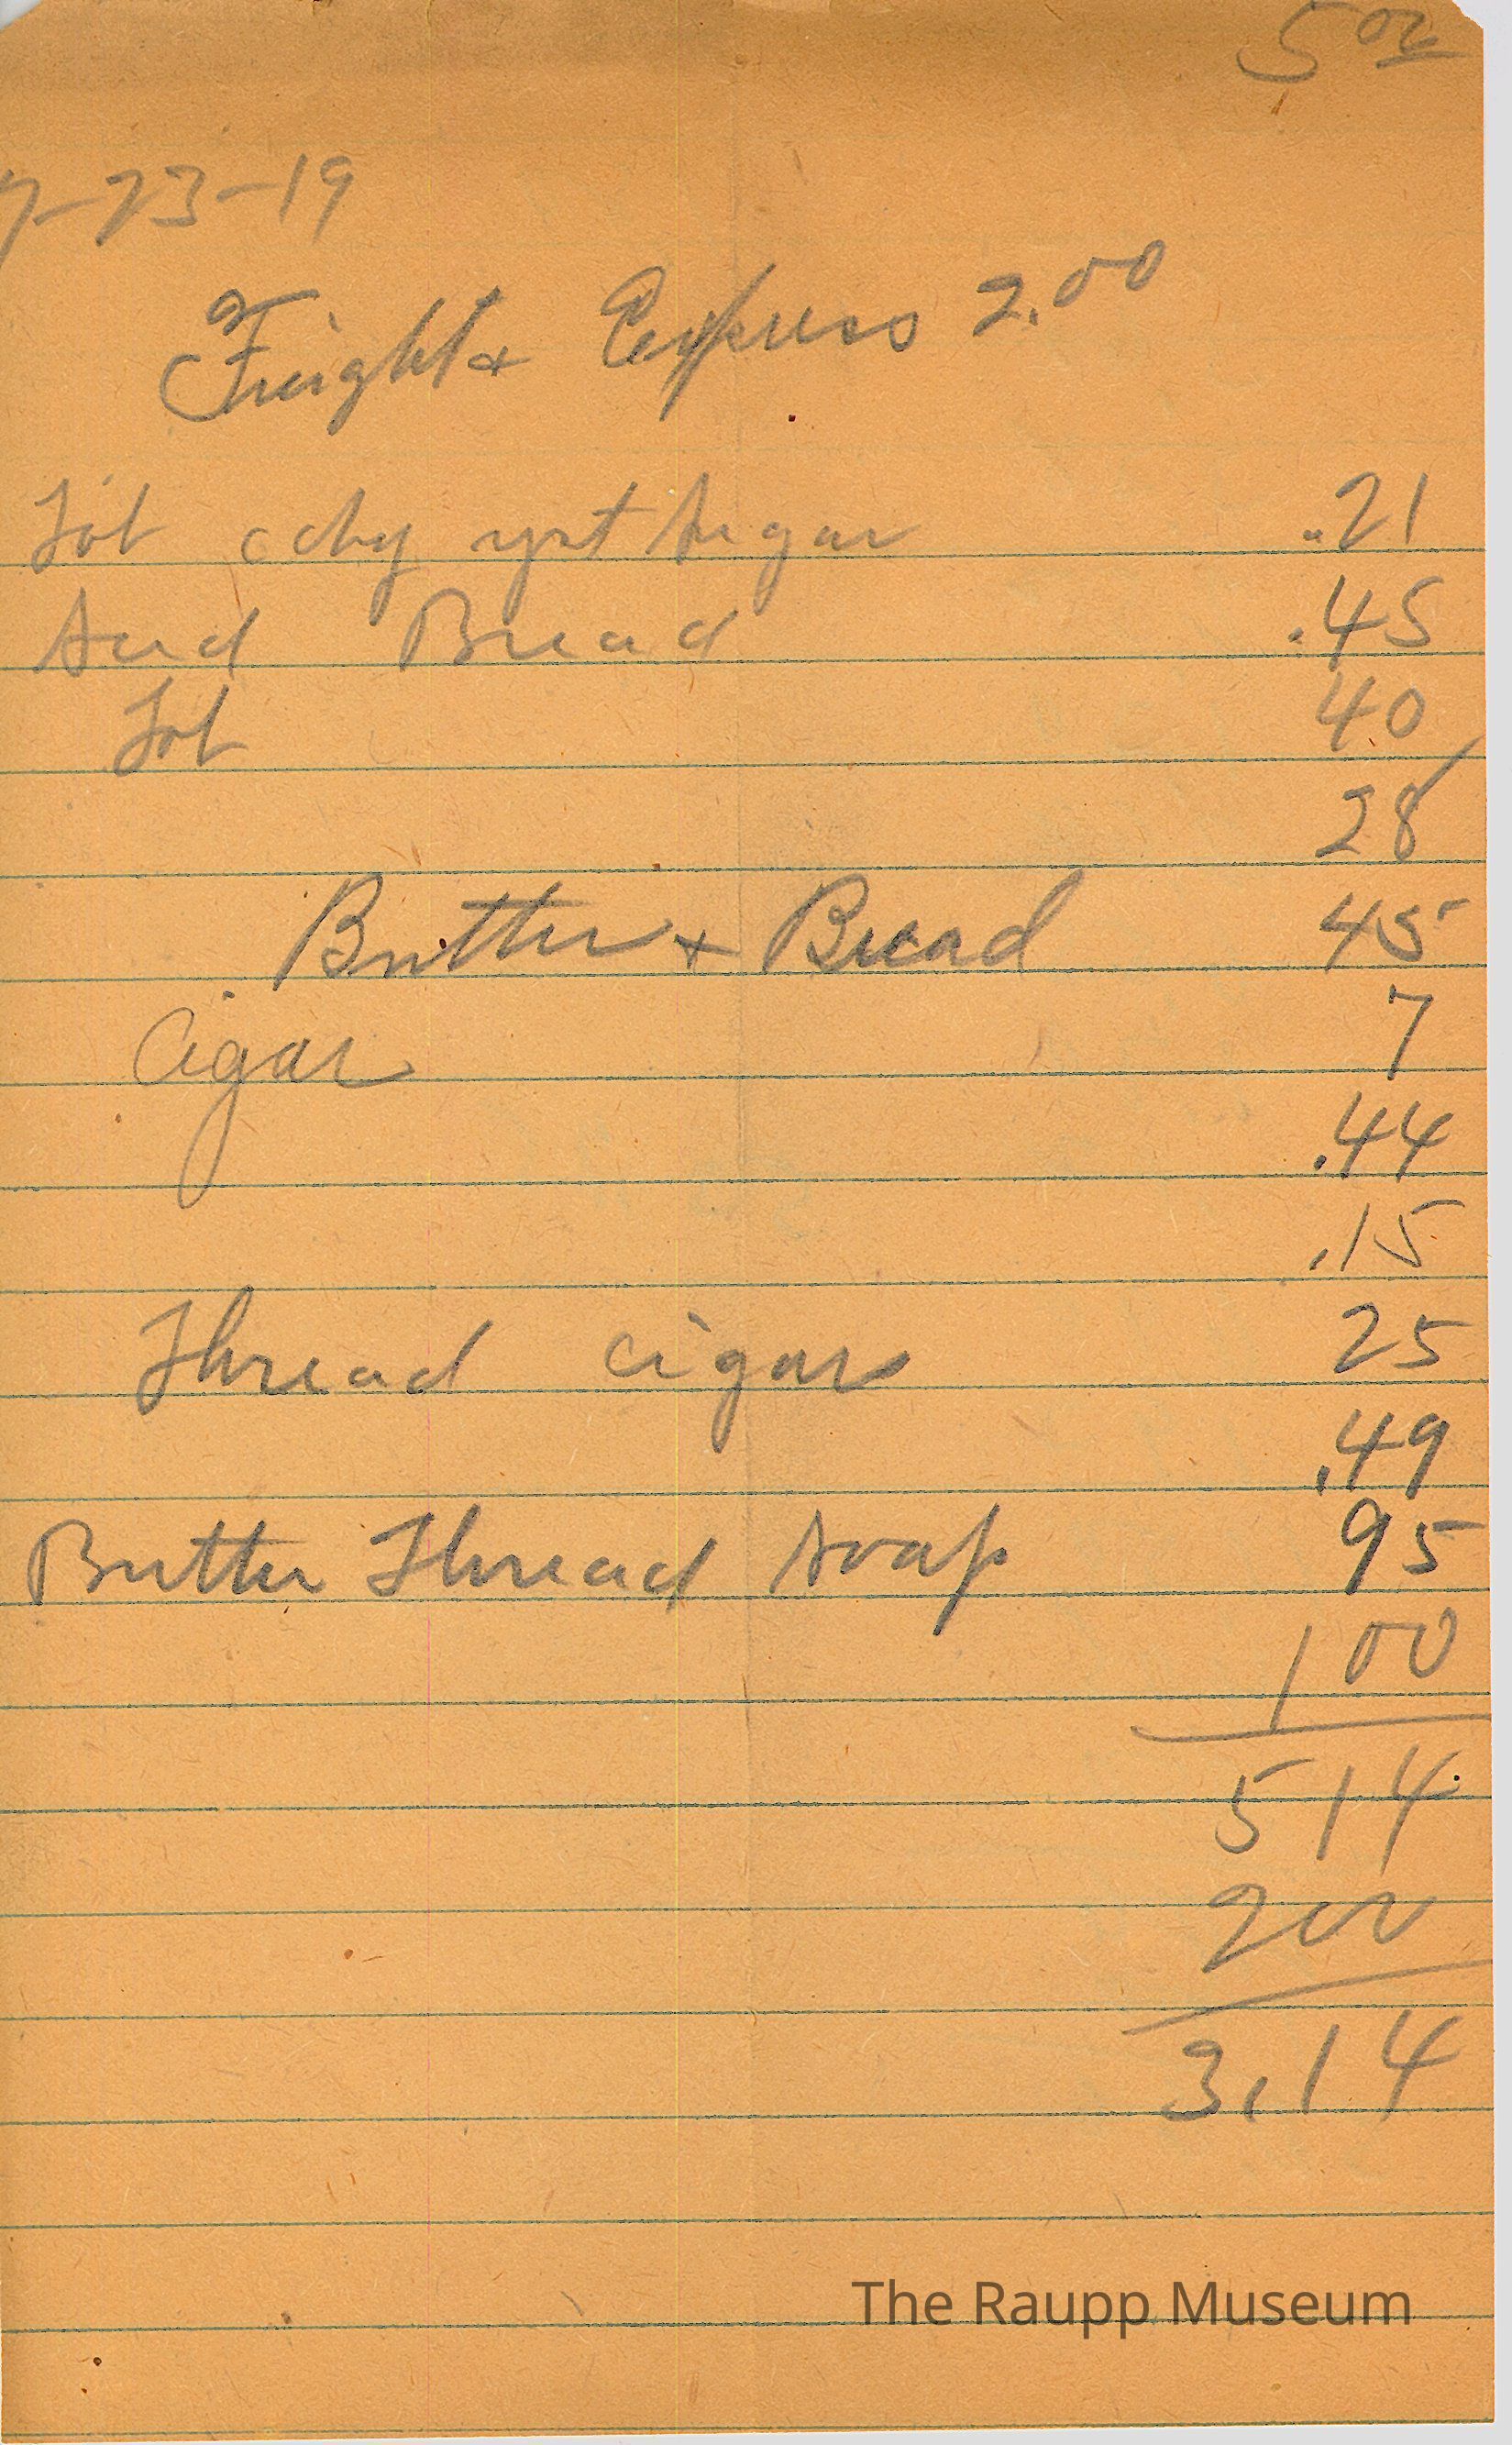 5 00
7-23-19
Freight & Express 2.00
Tob cdy yst Sugar .21
Bread .45
Tob 40
28
Butter + Bread 45
Cigar 7
.44
.15
Thread cigars 25
.49
Butter Thread Soap 95
1 00
5 14
2 00
3.14
The Raupp Museum